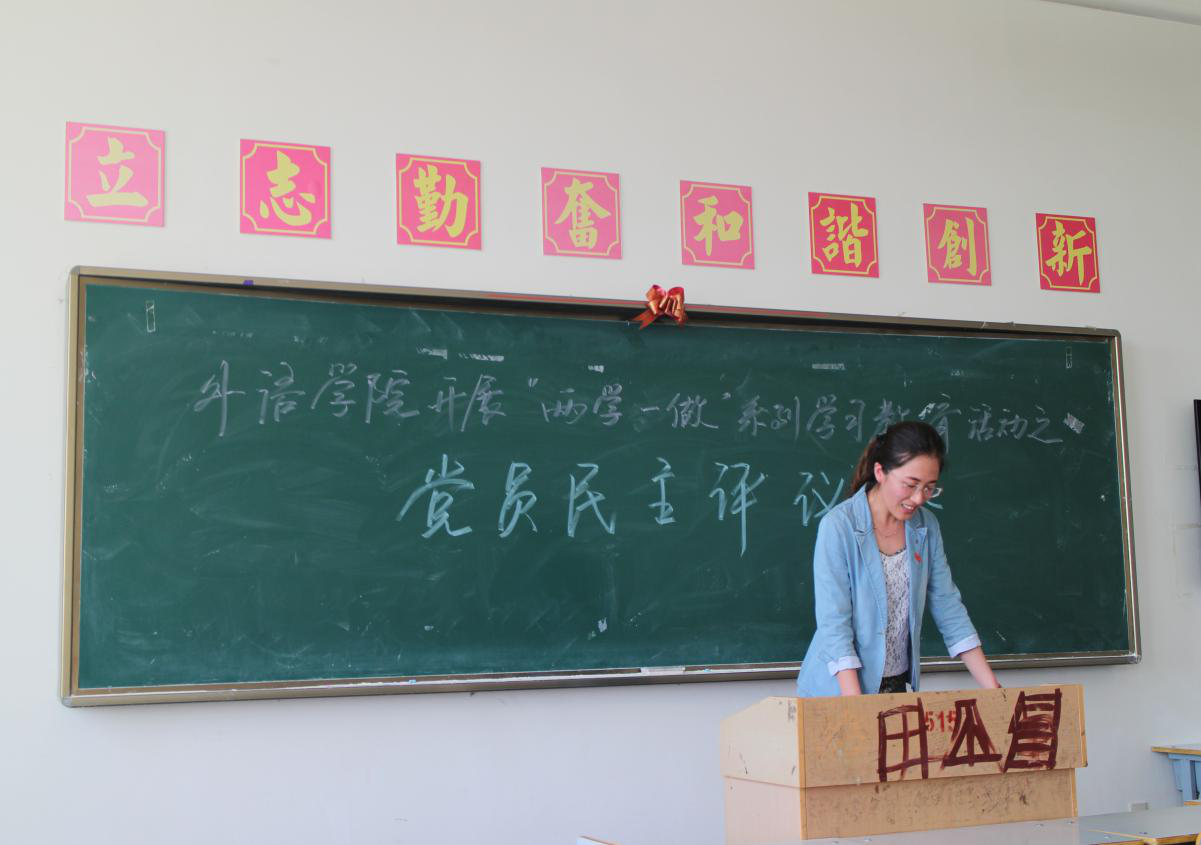 立志勤奋和諧創新
外语学院开展"两学一做"系列学习教育活动之
党员民主评议
515